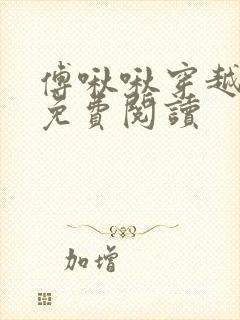 傅啾啾穿越
免費閱讀
加增